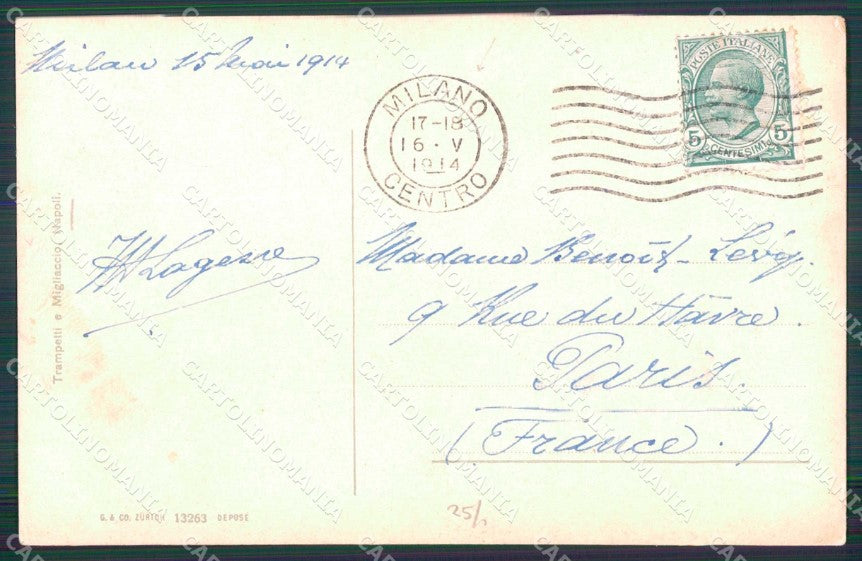 Milan 15 Mai 1914
MILANO
17-18
16·V
1914
CENTRO
POSTE ITALIANE
5 5
CENTESIMI
Trampetti e Migliaccio, Napoli.
Madame Benoît-Lévy.
9 Rue du Hâvre.
Paris.
(France.)
G. & CO. ZÜRICH 13263 DEPOSE
25/
CARTOLINOMANIA